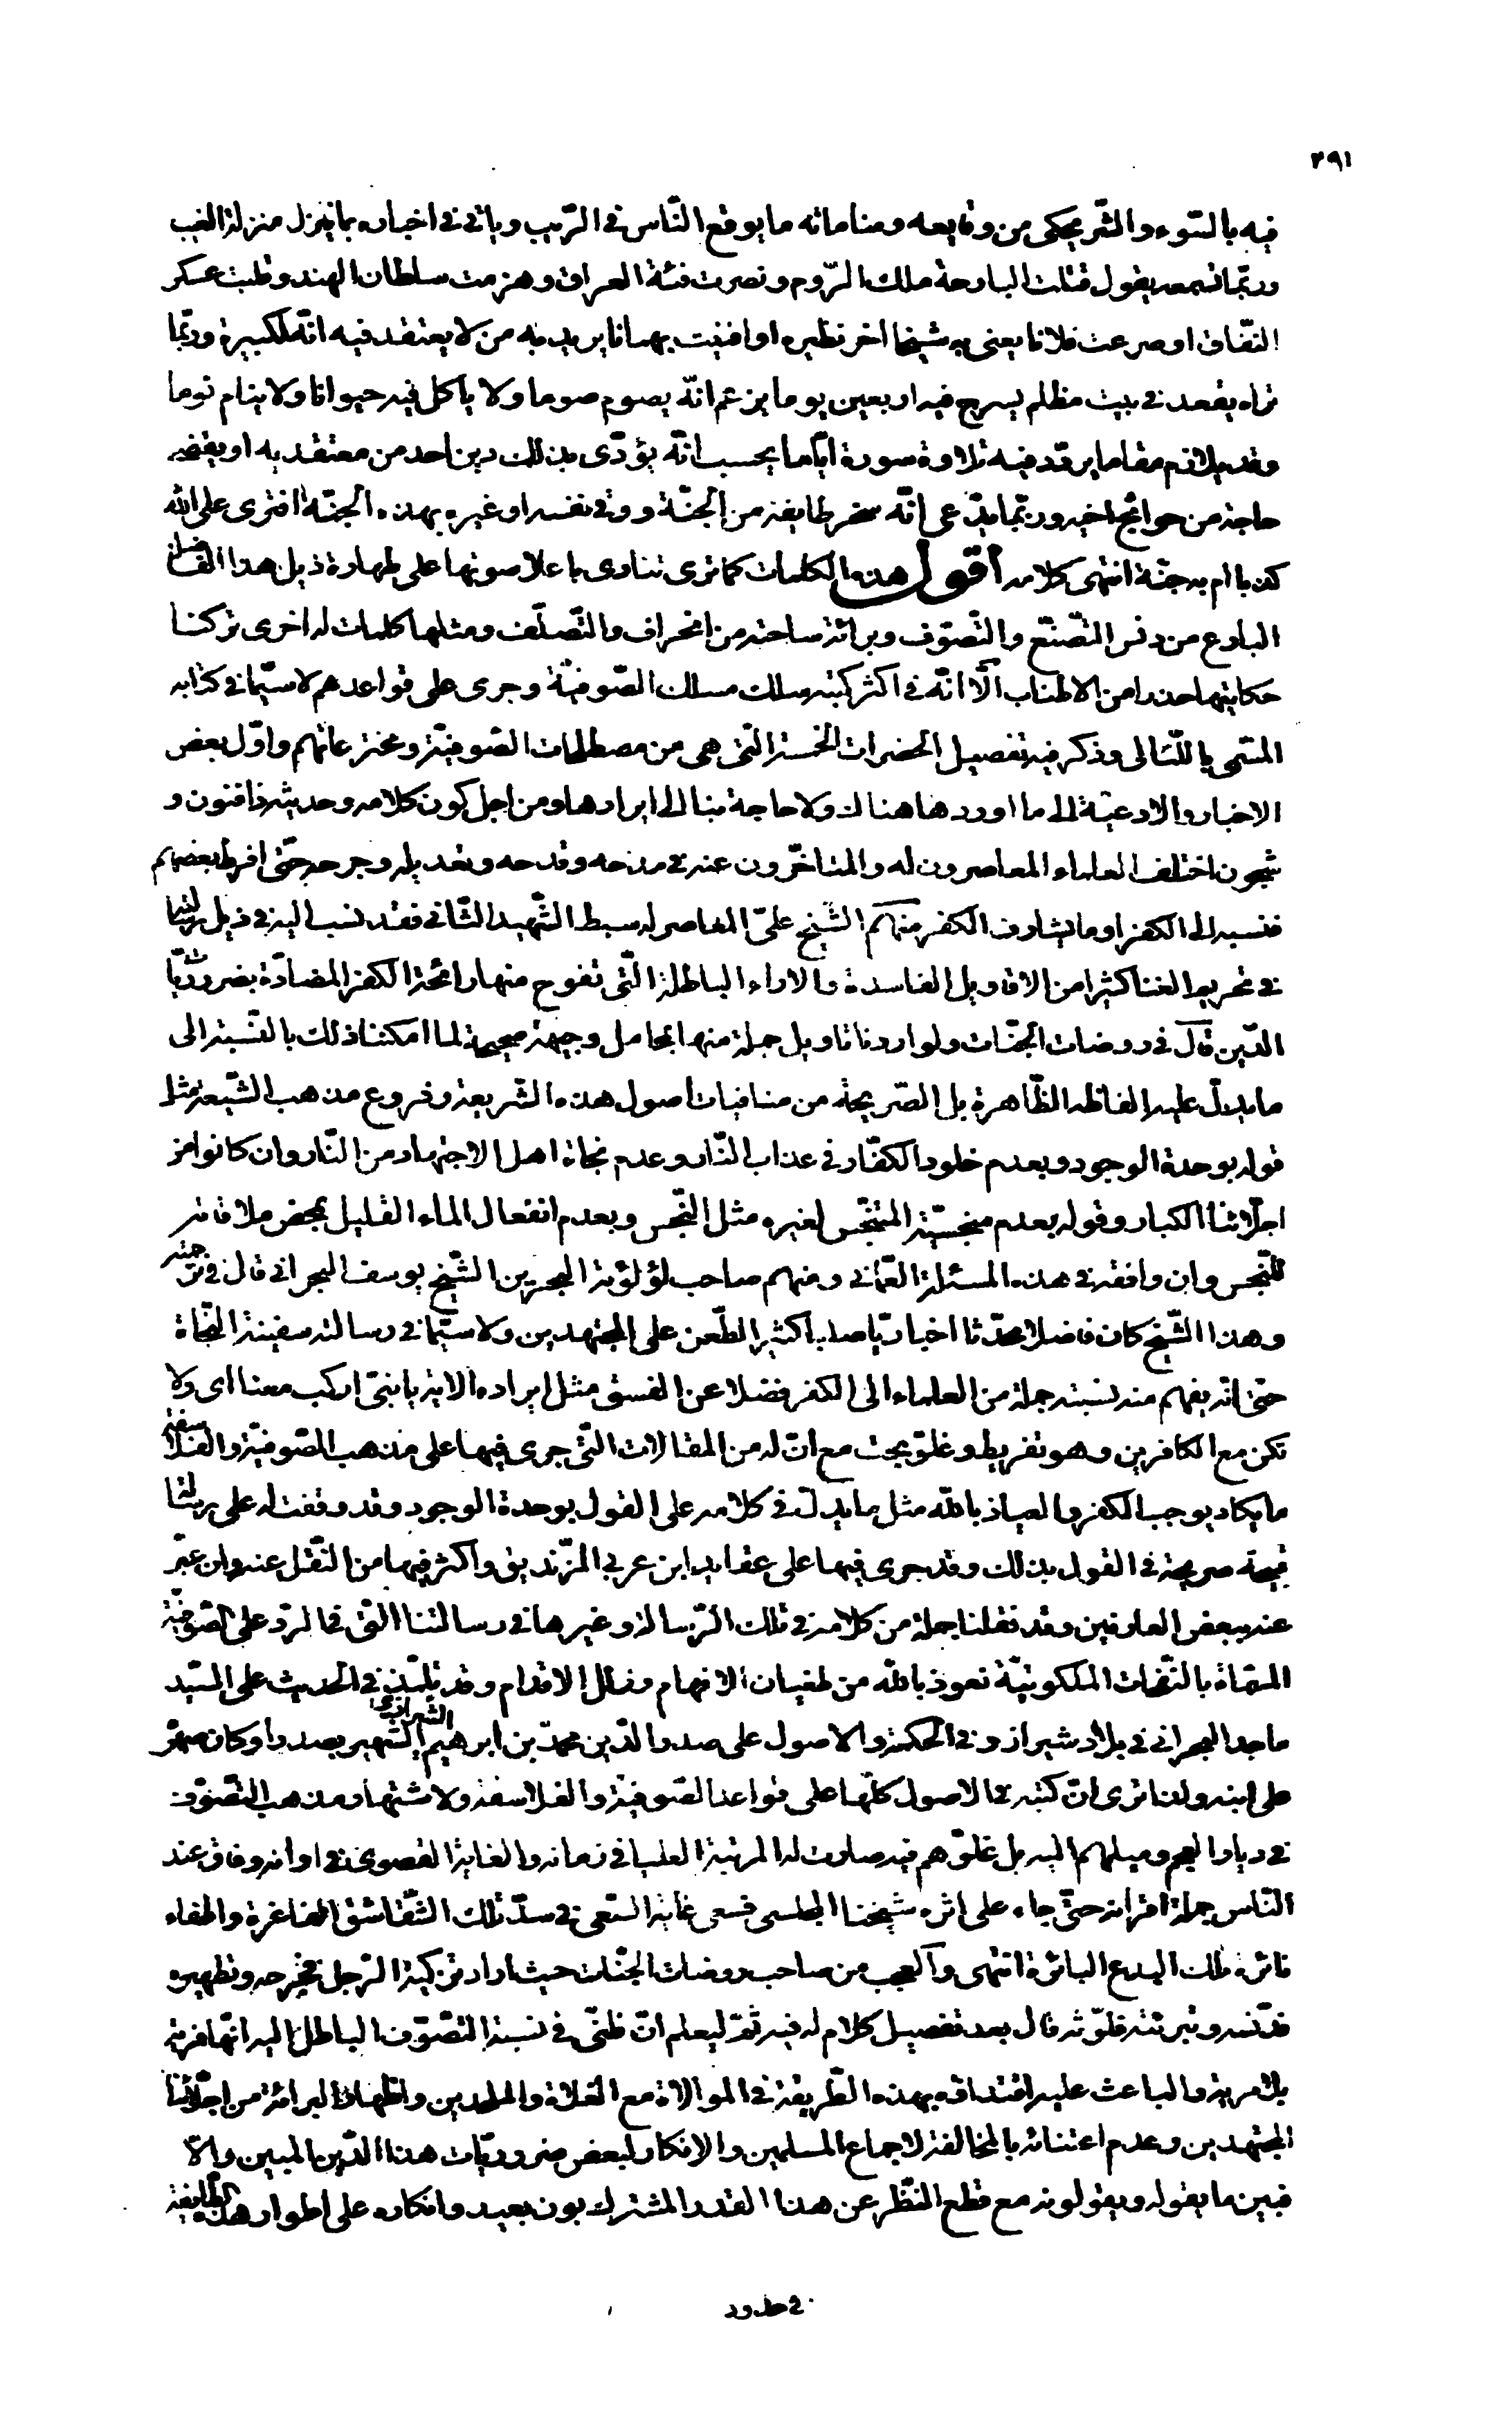 ٢٩١
فيه بالسّوء والشّر يحكى من وقايعه ومناماته ما يوقع النّاس فى الرّيب وياتى فى اخباره بما ينزل منزلة الغيب
وربّما تسمعه يقول قتلت البارحة ملك الرّوم ونصرت فئة العراق وهزمت سلطان الهند وقلبت عسكر
النّفاق او صرعت فلانا يعنى به شيخا اخر نظيره او افنيت بهمانا يريد به من لا يعتقد فيه انّه لكبيرة وربّما
تراه يقعد فى بيت مظلم يسرج فيه اربعين يوما يزعم انّه يصوم صوما ولا ياكل فيه حيوانا ولا ينام نوما
وقد يلازم مقاما يردّد فيه تلاوة سورة ايّاما يحسب انّه يؤدّى بذلك دين احد من معتقديه او يقضى
حاجة من حوائج اخيه وربّما يدّعى انّه سخر طايفة من الجنّة ووقى نفسه او غيره بهذه الجنّة افترى على الله
كذبا ام به جنّة انتهى كلامه اقول هذه الكلمات كما ترى تنادى باعلا صوتها على طهارة ذيل هذا الفاضل
البارع من دنس التّصنّع والتّصوّف وبرائة ساحته من انحراف والتّصلّف ومثلها كلمات له اخرى تركنا
حكايتها حذرا من الاطناب الّا انّه فى اكثر كتبه سلك مسلك الصّوفيّة وجرى على قواعدهم لا سيّما فى كتابه
المسّمى باللّئالى وذكر فيه تفصيل الحضرات الخمسة الّتى هى من مصطلحات الصّوفيّة ومخترعاتهم واوّل بعض
الاخبار والادعيّة الى ما اوردها هناك ولا حاجة بنا الى ايرادها ومن اجل كون كلامه وحديثه ذا فنون و
شجون اختلف العلماء المعاصرون له والمتاخّرون عنه فى مدحه وقدحه وتعديله وجرحه حتّى افرط بعضهم
فنسبه الى الكفر او ما يشارف الكفر منهم الشّيخ علىّ المعاصر له سبط الشّهيد الثّانى فقد نسب اليه فى ذيل رسالته
فى تحريم الغنا كثيرا من الاقاويل الفاسدة والاراء الباطلة الّتى تفوح منها رائحة الكفر المضادّة بضروريّات
الدّين قال فى روضات الجنّات ولو اردنا تاويل جملة منها بمحامل وجيهة صحيحة لما امكننا ذلك بالنّسبة الى
ما يدلّ عليه الفاظه الظّاهرة بل الصّريحة من منافيات اصول هذه الشّريعة وفروع مذهب الشّيعة مثل
قوله بوحدة الوجود وبعدم خلود الكفّار فى عذاب النّار وعدم نجاة اهل الاجتهاد من النّار وان كانوا من
اجلّائنا الكبار وقوله بعدم منجسيّة المتنجّس لغيره مثل النّجس وبعدم انفعال الماء القليل بمحض ملاقاته
للنّجس وان وافقه فى هذه المسئلة العمّانى ومنهم صاحب لؤلؤية البحرين الشّيخ يوسف البحرانى قال فى ترجمته
وهذا الشّيخ كان فاضلا محدّثا اخباريّا صلبا كثير الطّعن على المجتهدين ولا سيّما فى رسالته سفينة النّجاة
حتّى انّه يفهم منه نسبته جملة من العلماء الى الكفر فضلا عن الفسق مثل ايراده الاية يا بنىّ اركب معنا اى ولا
تكن مع الكافرين وهو تفريط وغلوّ بحت مع انّ له من المقالات الّتى جرى فيها على مذهب الصّوفيّة والفلاسفة
ما يكاد يوجب الكفر والعياذ بالله مثل ما يدلّ فى كلامه على القول بوحدة الوجود وقد وقفت له على رسالة
قبيحة صريحة فى القول بذلك وقد جرى فيها على عقايد ابن عربى الزّنديق واكثر فيها من النّقل عنه وان عبّر
عنه ببعض العارفين وقد نقلنا جملة من كلامه فى تلك الرّسالة وغيرها فى رسالتنا الّتى فى الرّد على الصّوفيّة
المسمّاة بالنّفحات الملكوتيّة نعوذ بالله من طغيان الافهام وزلل الاقدام وقد تلمّذ فى الحديث على السّيد
ماجد البحرانى فى بلاد شيراز وفى الحكمة والاصول على صدر الدّين محمّد بن ابرهيم الشيرازى الشّهير بصدرا وكان صهره
على ابنته ولذا ترى انّ كتبه فى الاصول كلّها على قواعد الصّوفيّة والفلاسفة ولاشتهار مذهب التّصوّف
فى ديار العجم وميلهم اليه بل غلوّهم فيه صارت له المرتبة العليا فى زمانه والغاية القصوى فى اوانه وفاق عند
النّاس جملة اقرانه حتّى جاء على اثره شيخنا المجلسى فسعى غاية السّعى فى سدّ تلك الشّقاشق الفاغرة واطفاء
نائرة تلك البدع البائرة انتهى والعجب من صاحب روضات الجنّات حيث اراد تزكية الرّجل فجرحه وتطهيره
فدنّسه وتبرئته فلوّثه قال بعد تفصيل كلام له فيه ثمّ ليعلم انّ ظنّى فى نسبة التّصوّف الباطل اليه انّها فرية
بلا مرية والباعث عليه اقتداؤه بهذه الطّريقة فى الموالاة مع الغلاة والملحدين واظهار البرائة من اجلّائنا
المجتهدين وعدم اعتنائه بالمخالفة لاجماع المسلمين والانكار لبعض ضروريّات هذا الدّين المبين والّا
فبين ما يقوله ويقولونه مع قطع النّظر عن هذا القدر المشترك بون بعيد وانكاره على اطوار هذه الطّايفة
فى حدود